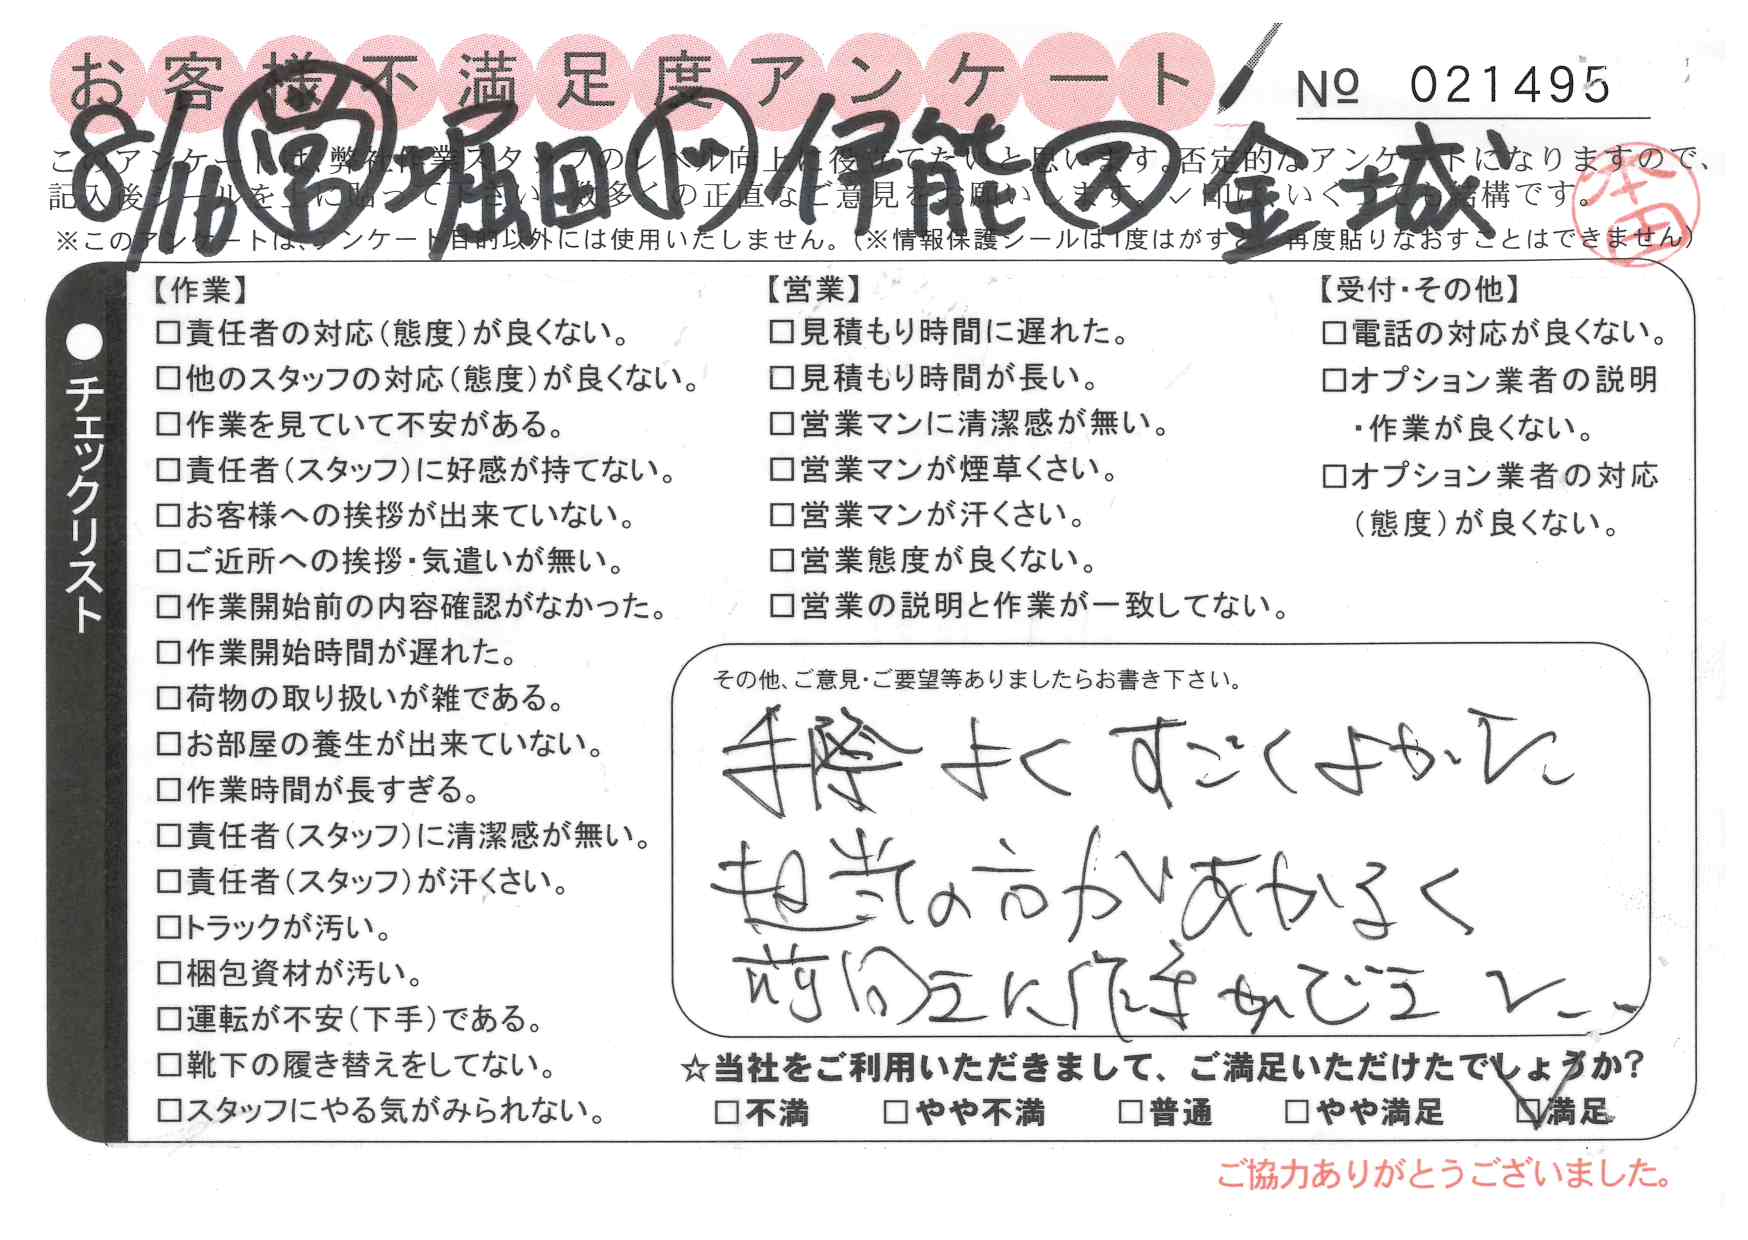 お客様不満足度アンケート
№ 021495
8/16 営 堀田 ド 伊能 ス 金城
このアンケートは、弊社作業スタッフのレベル向上に役立てたいと思います。否定的なアンケートになりますので、
記入後シールを上に貼って下さい。数多くの正直なご意見をお願いします。✓印は、いくつでも結構です。
※このアンケートは、アンケート目的以外には使用いたしません。(※情報保護シールは1度はがすと、再度貼りなおすことはできません)
本田
●チェックリスト
【作業】
□責任者の対応(態度)が良くない。
□他のスタッフの対応(態度)が良くない。
□作業を見ていて不安がある。
□責任者(スタッフ)に好感が持てない。
□お客様への挨拶が出来ていない。
□ご近所への挨拶・気遣いが無い。
□作業開始前の内容確認がなかった。
□作業開始時間が遅れた。
□荷物の取り扱いが雑である。
□お部屋の養生が出来ていない。
□作業時間が長すぎる。
□責任者(スタッフ)に清潔感が無い。
□責任者(スタッフ)が汗くさい。
□トラックが汚い。
□梱包資材が汚い。
□運転が不安(下手)である。
□靴下の履き替えをしてない。
□スタッフにやる気がみられない。
【営業】
□見積もり時間に遅れた。
□見積もり時間が長い。
□営業マンに清潔感が無い。
□営業マンが煙草くさい。
□営業マンが汗くさい。
□営業態度が良くない。
□営業の説明と作業が一致してない。
【受付・その他】
□電話の対応が良くない。
□オプション業者の説明
・作業が良くない。
□オプション業者の対応
(態度)が良くない。
その他、ご意見・ご要望等ありましたらお書き下さい。
手際よくすごくよかった
担当の方があかるく
前向きに作業ができました
☆当社をご利用いただきまして、ご満足いただけたでしょうか?
□不満 □やや不満 □普通 □やや満足 ☑満足
ご協力ありがとうございました。